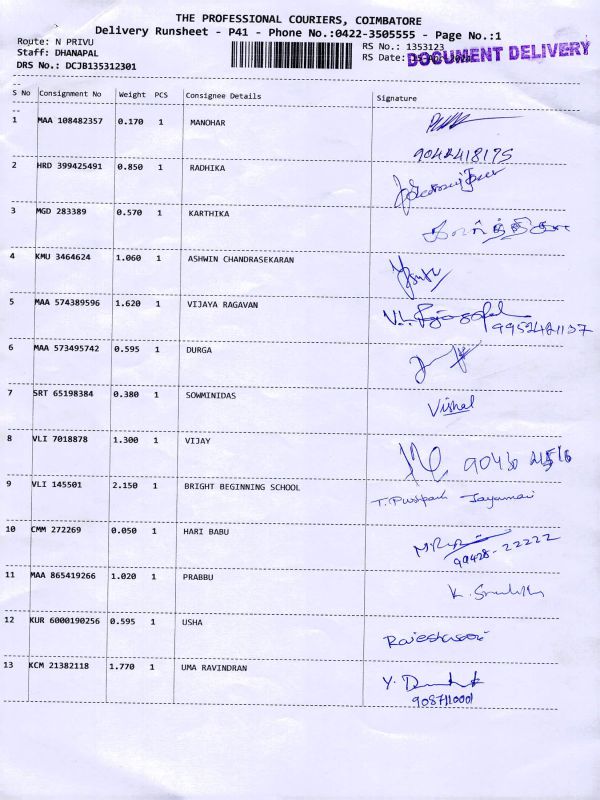 THE PROFESSIONAL COURIERS, COIMBATORE
Delivery Runsheet - P41 - Phone No.:0422-3505555 - Page No.:1
Route: N PRIVU
Staff: DHANAPAL
DRS No.: DCJB135312301
RS No.: 1353123
RS Date:
DOCUMENT DELIVERY
S No Consignment No Weight PCS Consignee Details Signature
1 MAA 108482357 0.170 1 MANOHAR
9042418175
2 HRD 399425491 0.850 1 RADHIKA
3 MGD 283389 0.570 1 KARTHIKA கார்த்திகா
4 KMU 3464624 1.060 1 ASHWIN CHANDRASEKARAN
5 MAA 574389596 1.620 1 VIJAYA RAGAVAN V.L. Rajagopal
6 MAA 573495742 0.595 1 DURGA
7 SRT 65198384 0.380 1 SOWMINIDAS Vishal
8 VLI 7018878 1.300 1 VIJAY
9 VLI 145501 2.150 1 BRIGHT BEGINNING SCHOOL T. Pushpa Jayamari
10 CMM 272269 0.050 1 HARI BABU
99428-22222
11 MAA 865419266 1.020 1 PRABBU
12 KUR 6000190256 0.595 1 USHA Rajeshwari
13 KCM 21382118 1.770 1 UMA RAVINDRAN
9087110001